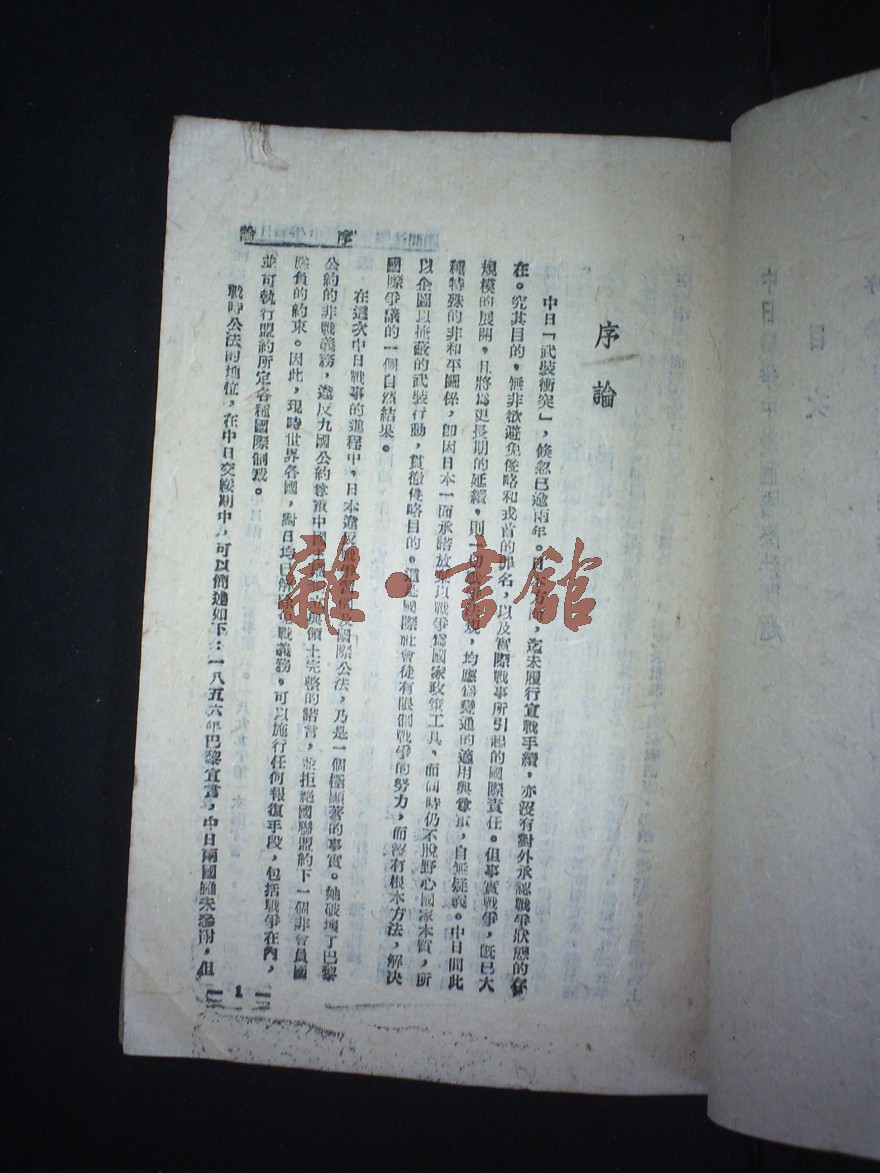 序論
序論
中日「武裝衝突」，倏忽已逾兩年。日本方面，迄未履行宣戰手續，亦沒有對外承認戰爭狀態的存
在。究其目的，無非欲避免侵略和戎首的罪名，以及實際戰事所引起的國際責任。但事實戰爭，旣已大
規模的展開，且將爲更長期的延續，則一切戰爭法規，均應爲變通的適用與尊重，自無疑義。中日間此
種特殊的非和平關係，卽因日本一面承諾放棄以戰爭爲國家政策工具，而同時仍不脫野心國家本質，所
以企圖以掩蔽的武裝行動，貫徹侵略目的。這是國際社會徒有限制戰爭的努力，而沒有根本方法，解決
國際爭議的一個自然結果。
在這次中日戰事的進程中，日本違反國際公法，乃是一個極顯著的事實。她破壞了巴黎
公約的非戰義務，違反九國公約尊重中國與領土完整的諾言，並拒絕國聯盟約下一個非會員國
應負的約束。因此，現時世界各國，對日均已解除戰義務。可以施行任何報復手段，包括戰爭在內，
並可執行盟約所定各種國際制裁。
戰時公法的地位，在中日交綏期中，可以簡述如下：一八五六年巴黎宣言，中日兩國雖未參附，但
1
雜·書館
目次
中日戰爭中